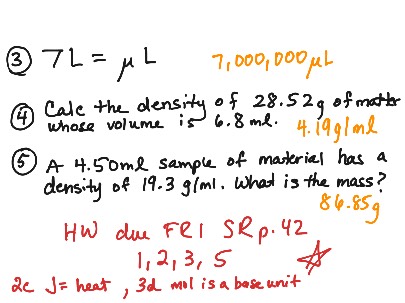 ③ 7 L = μL 7,000,000 μL
④ Calc the density of 28.52g of matter
whose volume is 6.8 ml. 4.19 g/ml
⑤ A 4.50ml sample of material has a
density of 19.3 g/ml. What is the mass?
86.85g
HW due FRI SR p. 42
1, 2, 3, 5
2c J = heat , 3d mol is a base unit